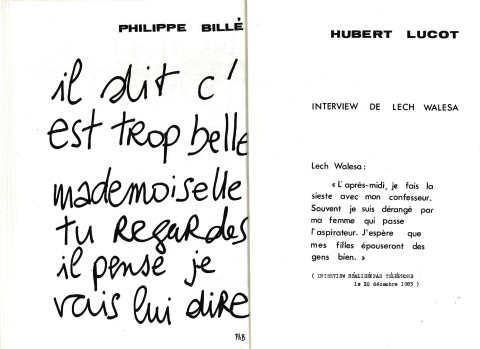 PHILIPPE BILLÉ
il dit c'
est trop belle
mademoiselle
tu regardes
il pense je
vais lui dire
PhB
HUBERT LUCOT
INTERVIEW DE LECH WALESA
Lech Walesa :
« L'après-midi, je fais la
sieste avec mon confesseur.
Souvent je suis dérangé par
ma femme qui passe
l'aspirateur. J'espère que
mes filles épouseront des
gens bien. »
( INTERVIEW RÉALISÉE PAR TÉLÉPHONE
le 20 décembre 1983 )